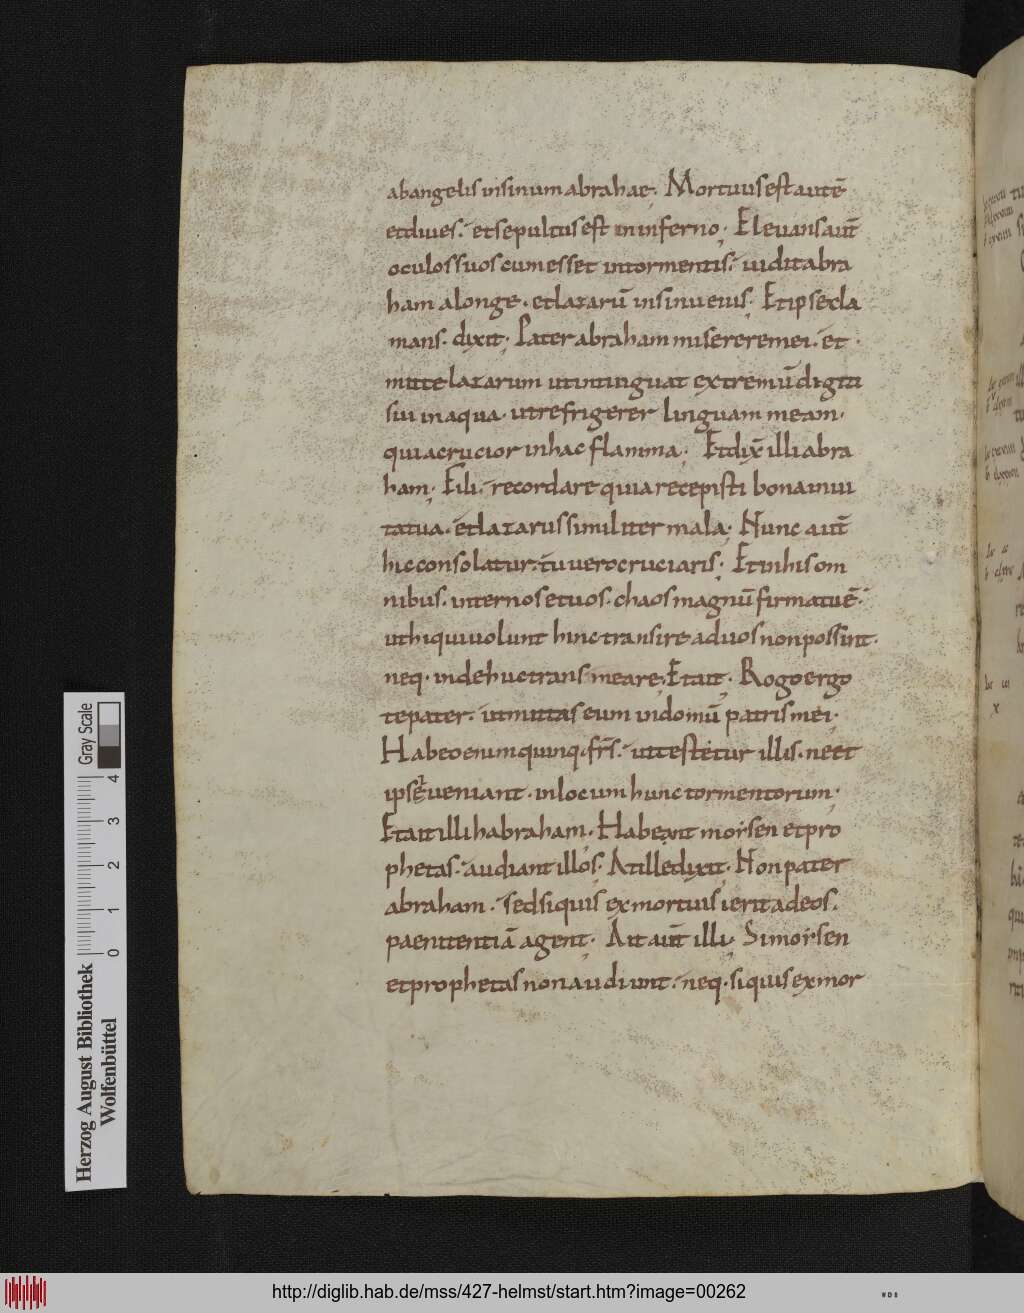 ab angelis in sinum abrahae; Mortuus est autē
et diues. et sepultus est in inferno; Eleuans aut̄
oculos suos cum esset in tormentis. uidit abra
ham a longe. et lazarū in sinu eius; Et ipse cla
mans. dixit; Pater abraham miserere mei. et
mitte lazarum ut intinguat extremū digiti
sui in aqua. ut refrigeret linguam meam.
quia crucior in hac flamma; Et dix̄ illi abra
ham; Fili. recordare quia recepisti bona in ui
ta tua. et lazarus similiter mala; Nunc aut̄
hic consolatur. tu uero cruciaris; Et in his om
nibus. inter nos et uos. chaos magnū firmatū ē.
ut hi qui uolunt hinc transire ad uos non possint.
neq. inde huc transmeare; Et ait; Rogo ergo
te pater. ut mittas eum in domū patris mei;
Habeo enim quinq. frs̄. ut testetur illis. ne et
ipsi ueniant. in locum hunc tormentorum;
Et ait illi habraham; Habeant moisen et pro
phetas. audiant illos; At ille dixit; Non pater
abraham. sed si quis ex mortuis ierit ad eos.
paenitentiā agent; Ait aut̄ illi; Si moisen
et prophetas non audiunt. neq. si quis ex mor
Gray Scale
4
3
2
1
0
Herzog August Bibliothek
Wolfenbüttel
http://diglib.hab.de/mss/427-helmst/start.htm?image=00262